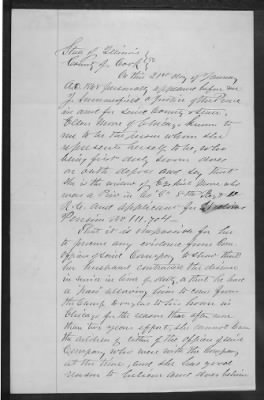 State of Illinois }
County of Cook } SS
On this 21st day of January
A.D. 1868 personally appeared before me
J. Summerfield, a Justice of the Peace
in and for said County & State,
Ellen More of Chicago known to
me to be the person whom she
represents herself to be, who
being first duly sworn does
on oath depose and say that
she is the widow of Ezekiel More who
was a Priv. in Co. "C" 8th Reg.
and applicant for
Pension No 111,704—
That it is impossible for her
to procure any evidence from
Officer of said Company to show that
her husband contracted the disease
in service in line of duty, & that he had
a "pass" allowing him to come from
the Camp Douglas to his home in
Chicago for the reason that after more
than two years effort, she cannot learn
the address of either of the officers of said
Company who were with the Company
at the time, and she has good
reason to believe and does believe